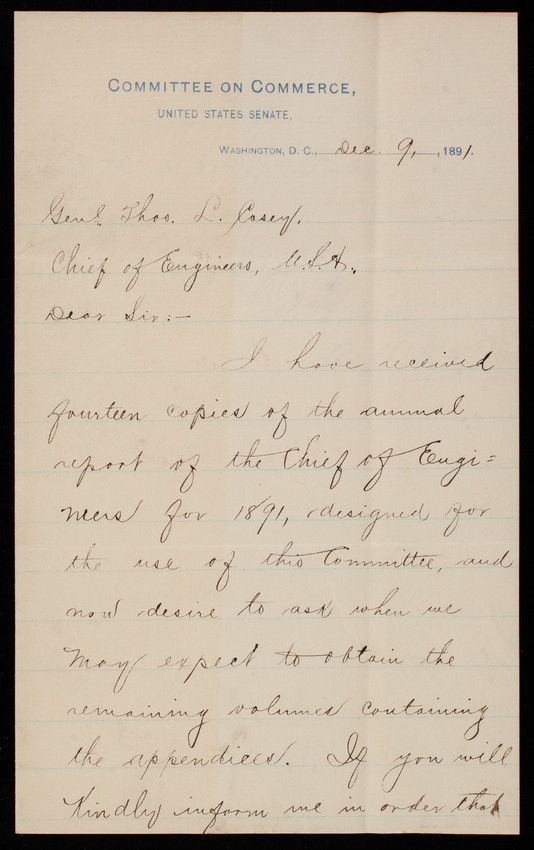 COMMITTEE ON COMMERCE,
UNITED STATES SENATE,
WASHINGTON, D. C., Dec. 9, 1891.
Genl. Thos. L. Casey,
Chief of Engineers, U.S.A.,
Dear Sir:-
I have received
fourteen copies of the annual
report of the Chief of Engi=
neers for 1891, designed for
the use of this Committee, and
now desire to ask when we
may expect to obtain the
remaining volumes containing
the appendices. If you will
kindly inform me in order that